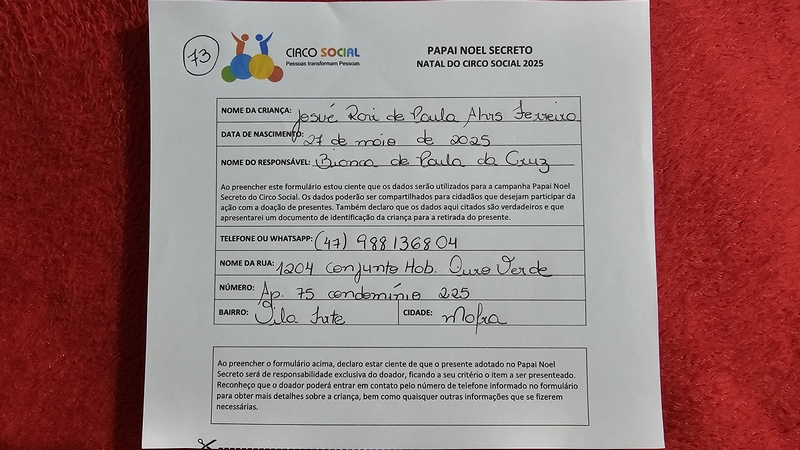 73
CIRCO SOCIAL
Pessoas transformam Pessoas
PAPAI NOEL SECRETO
NATAL DO CIRCO SOCIAL 2025
NOME DA CRIANÇA: Jesué Rori de Paula Ahrs Ferreira
DATA DE NASCIMENTO: 27 de maio de 2025
NOME DO RESPONSÁVEL: Bianca de Paula da Cruz
Ao preencher este formulário estou ciente que os dados serão utilizados para a campanha Papai Noel
Secreto do Circo Social. Os dados poderão ser compartilhados para cidadãos que desejam participar da
ação com a doação de presentes. Também declaro que os dados aqui citados são verdadeiros e que
apresentarei um documento de identificação da criança para a retirada do presente.
TELEFONE OU WHATSAPP: (47) 988136804
NOME DA RUA: 1204 conjunto Hob. Ouro Verde
NÚMERO: Ap. 75 condomínio 225
BAIRRO: Vila CIDADE: Mafra
Ao preencher o formulário acima, declaro estar ciente de que o presente adotado no Papai Noel
Secreto será de responsabilidade exclusiva do doador, ficando a seu critério o item a ser presenteado.
Reconheço que o doador poderá entrar em contato pelo número de telefone informado no formulário
para obter mais detalhes sobre a criança, bem como quaisquer outras informações que se fizerem
necessárias.